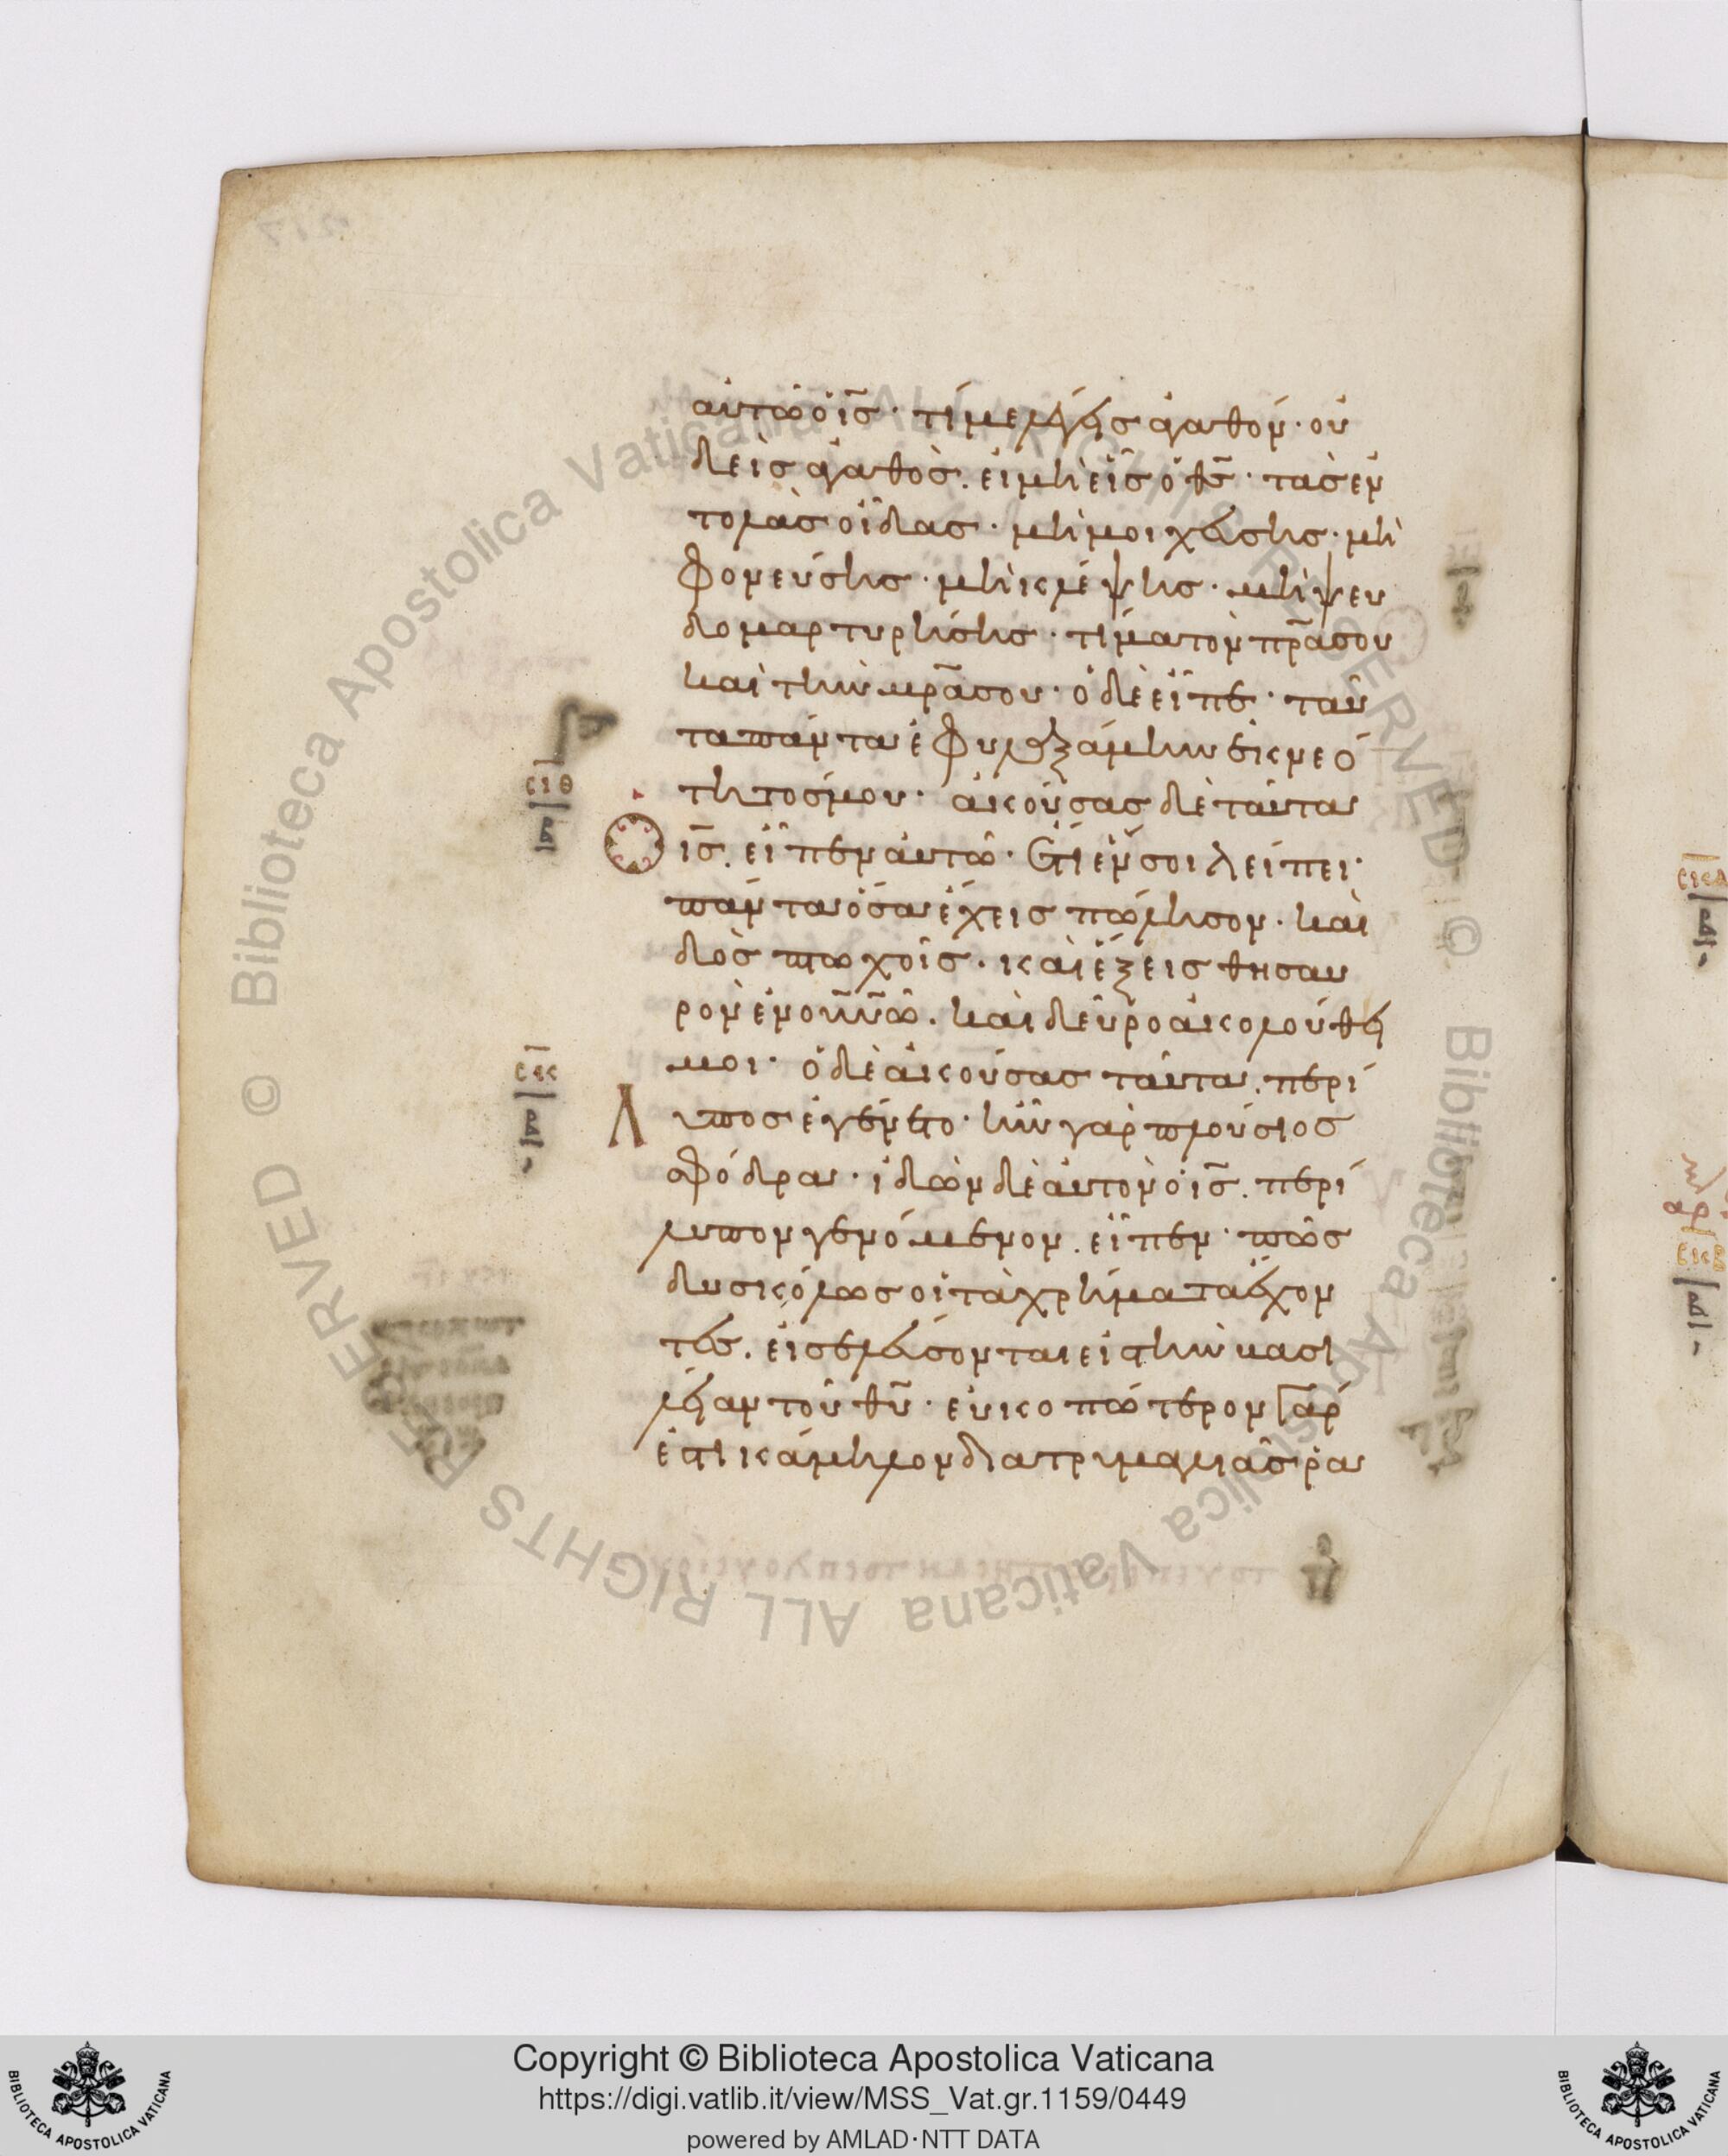 αὐτῶ ὁ ις̅· τί με λέγεισ ἀγαθόν· οὐ
δεὶσ ἀγαθὸσ. εἰ μὴ εἷσ ὁ θς̅· τὰσ ἐν
τολὰσ οἶδασ· μὴ μοιχεύσησ· μὴ
φονεύσησ· μὴ κλέψησ· μὴ ψευ
δομαρτυρήσησ· τίμα τὸν πρ̅α σου
καὶ τὴν μρ̅α σου· ὁ δὲ εἶπε· ταῦ
τα πάντα ἐφυλαξάμην ἐκ νεό
τητοσ μου· ἀκούσασ δὲ ταῦτα
ὁ ις̅. εἶπεν αὐτῶ· ἔτι ἕν σοι λείπει·
πάντα ὅσα ἔχεισ πώλησον· καὶ
δὸσ πτωχοῖσ· καὶ ἕξεισ θησαυ
ρὸν ἐν οὐνῶ. καὶ δεῦρο ἀκολούθει
μοι· ὁ δὲ ἀκούσασ ταῦτα. περί
λυποσ ἐγένετο· ἦν γὰρ πλούσιοσ
σφόδρα· ἰδὼν δὲ αὐτὸν ὁ ις̅. περί
λυπον γενόμενον. εἶπεν· πῶσ
δυσκόλωσ οἱ τὰ χρήματα ἔχον
τεσ. εἰσελεύσονται εἰσ τὴν βασι
λείαν τοῦ θυ̅· εὐκοπώτερον γάρ
ἐστι κάμηλον διὰ τρυμαλιᾶσ ῥα
σιθ
β
σκ
β
Copyright © Biblioteca Apostolica Vaticana
https://digi.vatlib.it/view/MSS_Vat.gr.1159/0449
powered by AMLAD·NTT DATA
BIBLIOTECA APOSTOLICA VATICANA
BIBLIOTECA APOSTOLICA VATICANA
© Biblioteca Apostolica Vaticana ALL RIGHTS RESERVED
© Biblioteca Apostolica Vaticana ALL RIGHTS RESERVED